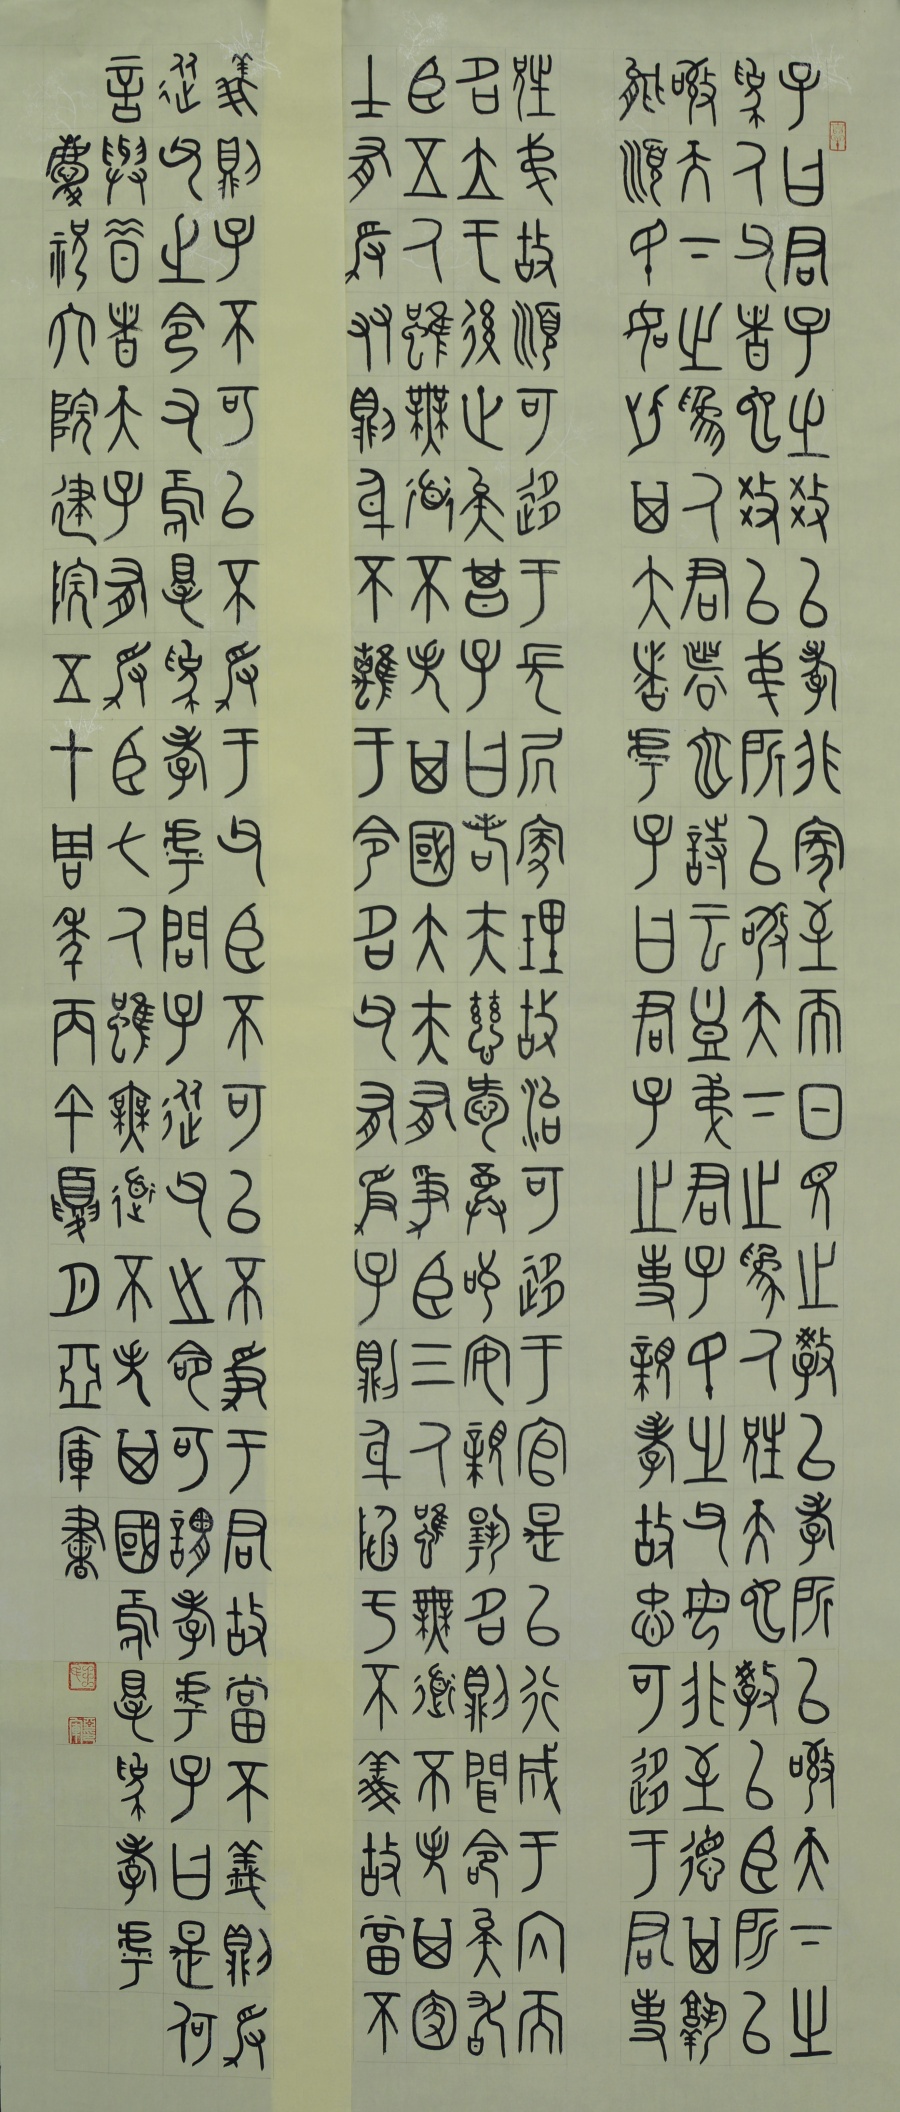 子曰君子之教以孝非家至而日見之教以孝所以敬天下之
為人父者也教以弟所以敬天下之為人兄天也教以臣所以
敬天下之為人君者也詩云豈弟君子民之父母非至德其孰
能順民如此其大者乎子曰君子之事親孝故忠可移于君事
兄弟故順可移于長居家理故治可移于官是以行成于內而
名立于後世矣曾子曰若夫慈愛恭敬安親揚名則聞命矣敢
臣五人雖無道不失其國大夫有爭臣三人雖無道不失其家
士有爭友則身不離于令名父有爭子則身陷于不義故當不
義則子不可以不爭于父臣不可以不爭于君故當不義則爭
從父之令又焉得為孝乎問子從父之命可謂孝乎子曰是何
言與昔者天子有爭臣七人雖無道不失其國焉得為孝乎
慶祝六院建院五十周年丙午夏月亞軍書